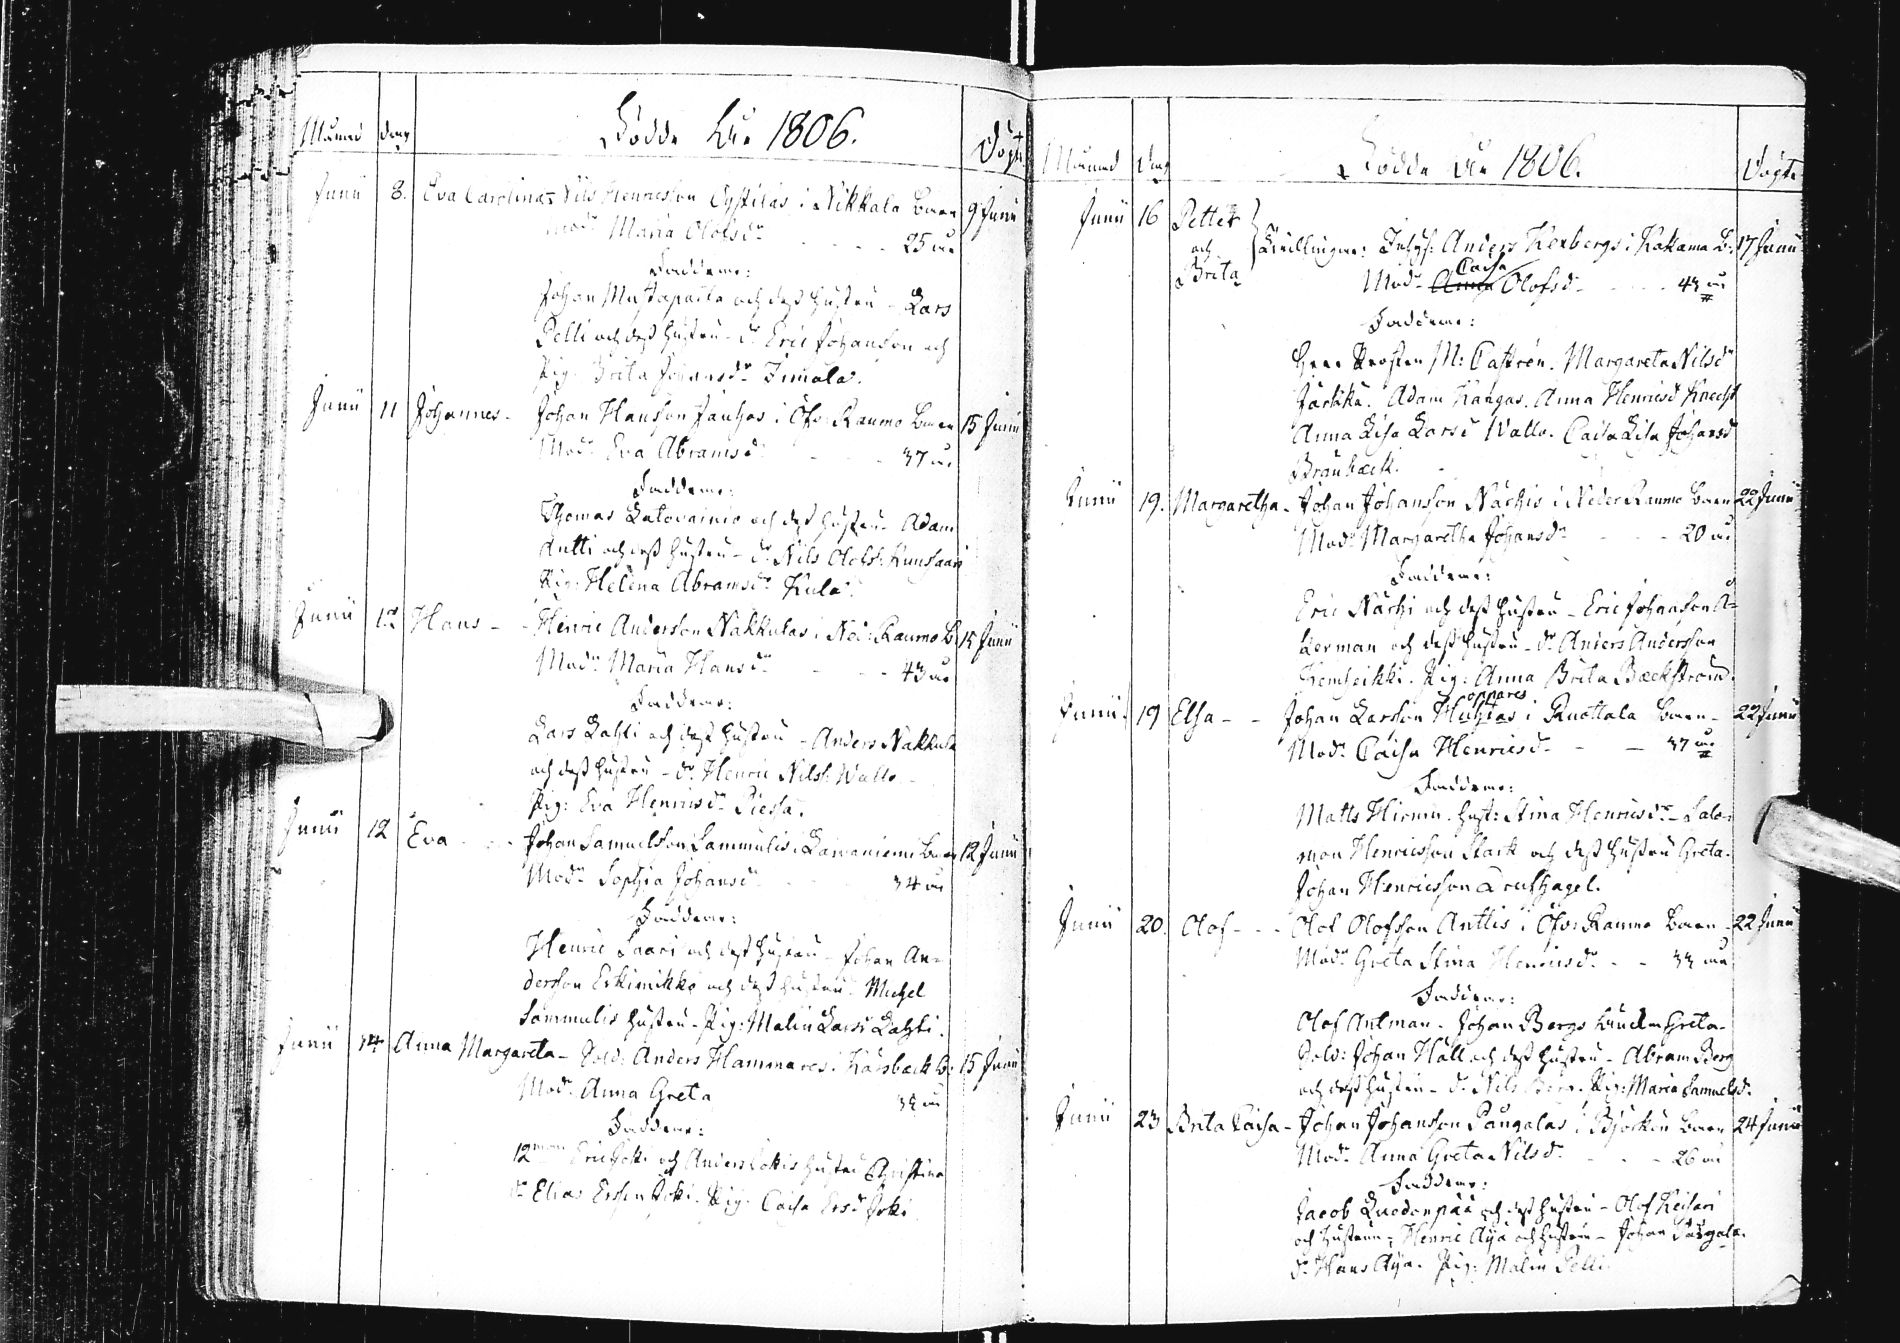 Månad dag Födde År 1806. Döpte
Junii 8. Eva Carolina Nils Henricsson Cystilas i Nikkala Barn 9 Junii
Modr Maria Olofsdr 25 år
Faddrar:
Johan Mustaparta och dess hustru - Lars
Pelli och dess hustru - dr Eric Johanson och
Pig: Brita Johansdr
Junii 11 Johannes - Johan Hanson i Öfv: Raumo Barn 15 Junii
Modr Eva Abramsd: 37 år
Faddrar:
Thomas Latovainio och dess hustru Adam
Antti och dess hustru - dr Nils Olofs: Kunsaari
Pig: Helena Abramsdr Kula.
Junii 12 Hans - Henric Anderson Nakkulas i Ned: Raumo B: 15 Junii
Modr Maria Hansdr 43 år
Faddrar:
Lars Lahti och dess hustru - Anders Nakkula
och dess hustru - dr Henric Nilss: Wallo
Pig: Eva Henricsdr Piessa.
Junii 12 Eva - Johan Samuelson Sammulis i Laivaniemi Barn 12 Junii
Modr Sophia Johansdr 34 år
Faddrar:
Henric Saari och dess hustru - Johan An-
derson Erkimikko och dess hustru. Michel
Sammulis hustru - Pig: Malin Larsd Lahti.
Junii 14 Anna Margareta - Sold: Anders Hammares i Karsbäck B: 15 Junii
Modr Anna Greta 32 år
Faddrar:
12man Eric Joki och Anders Jokis hustru Christina
dr Elias Erssen Joki. Pig: Caisa Ersd Joki
Månad Dag Födde År 1806. Döpte
Junii 16 Petter
och
Brita
Tvillingar: Inhys: Anders Kexbergs i Kakama B: 17 Junii
Modr Caisa Olofsdr 43 år
Faddrar:
Herr Prosten M: Castrén. Margareta Nilsdr
Adam Kangas. Anna Henricsd Knecht
Anna Lisa Larsd Wallo. Caisa Lisa Johansd
Brännback.
Junii 19. Margaretha - Johan Johanson Nächis i Neder Raumo Barn 22 Junii
Modr Margaretha Johansdr 20 år
Faddrar:
Eric Nächi och dess hustru - Eric Johanson Å-
kerman och dess hustru - dr Anders Anderson
Kemheikki. Pig: Anna Brita Bäckström.
Junii 19 Elsa - Johan Larsson i Ruottala Barn - 22 Junii
Modr Caisa Henricsdr 37 år
Faddrar:
Matts hust: Stina Henricsdr - Salo-
mon Henricsson Stark och dess hustru Greta.
Johan Henricsson Kruthagel.
Junii 20. Olof - Olof Olofsson Anttis i Öfv: Raumo Barn - 22 Junii
Modr Greta Stina Henricsdr 33 år
Faddrar:
Olof Antman - Johan Bergs Greta -
Sold: Johan Häll och dess hustru - Abram Berg
och dess hustru - dr Nils Berg. Pig: Maria Samuelsd.
Junii 23 Brita Caisa - Johan Johanson Pångalas i Björkön Barn 24 Junii
Modr Anna Greta Nilsdr 26 år
Faddrar:
Jacob Luodonpää och dess hustru - Olof Keisari
och hustrun - Henric Äijä och hustru - Johan Pångala.
dr Hans Äijä. Pig: Malin Pelli